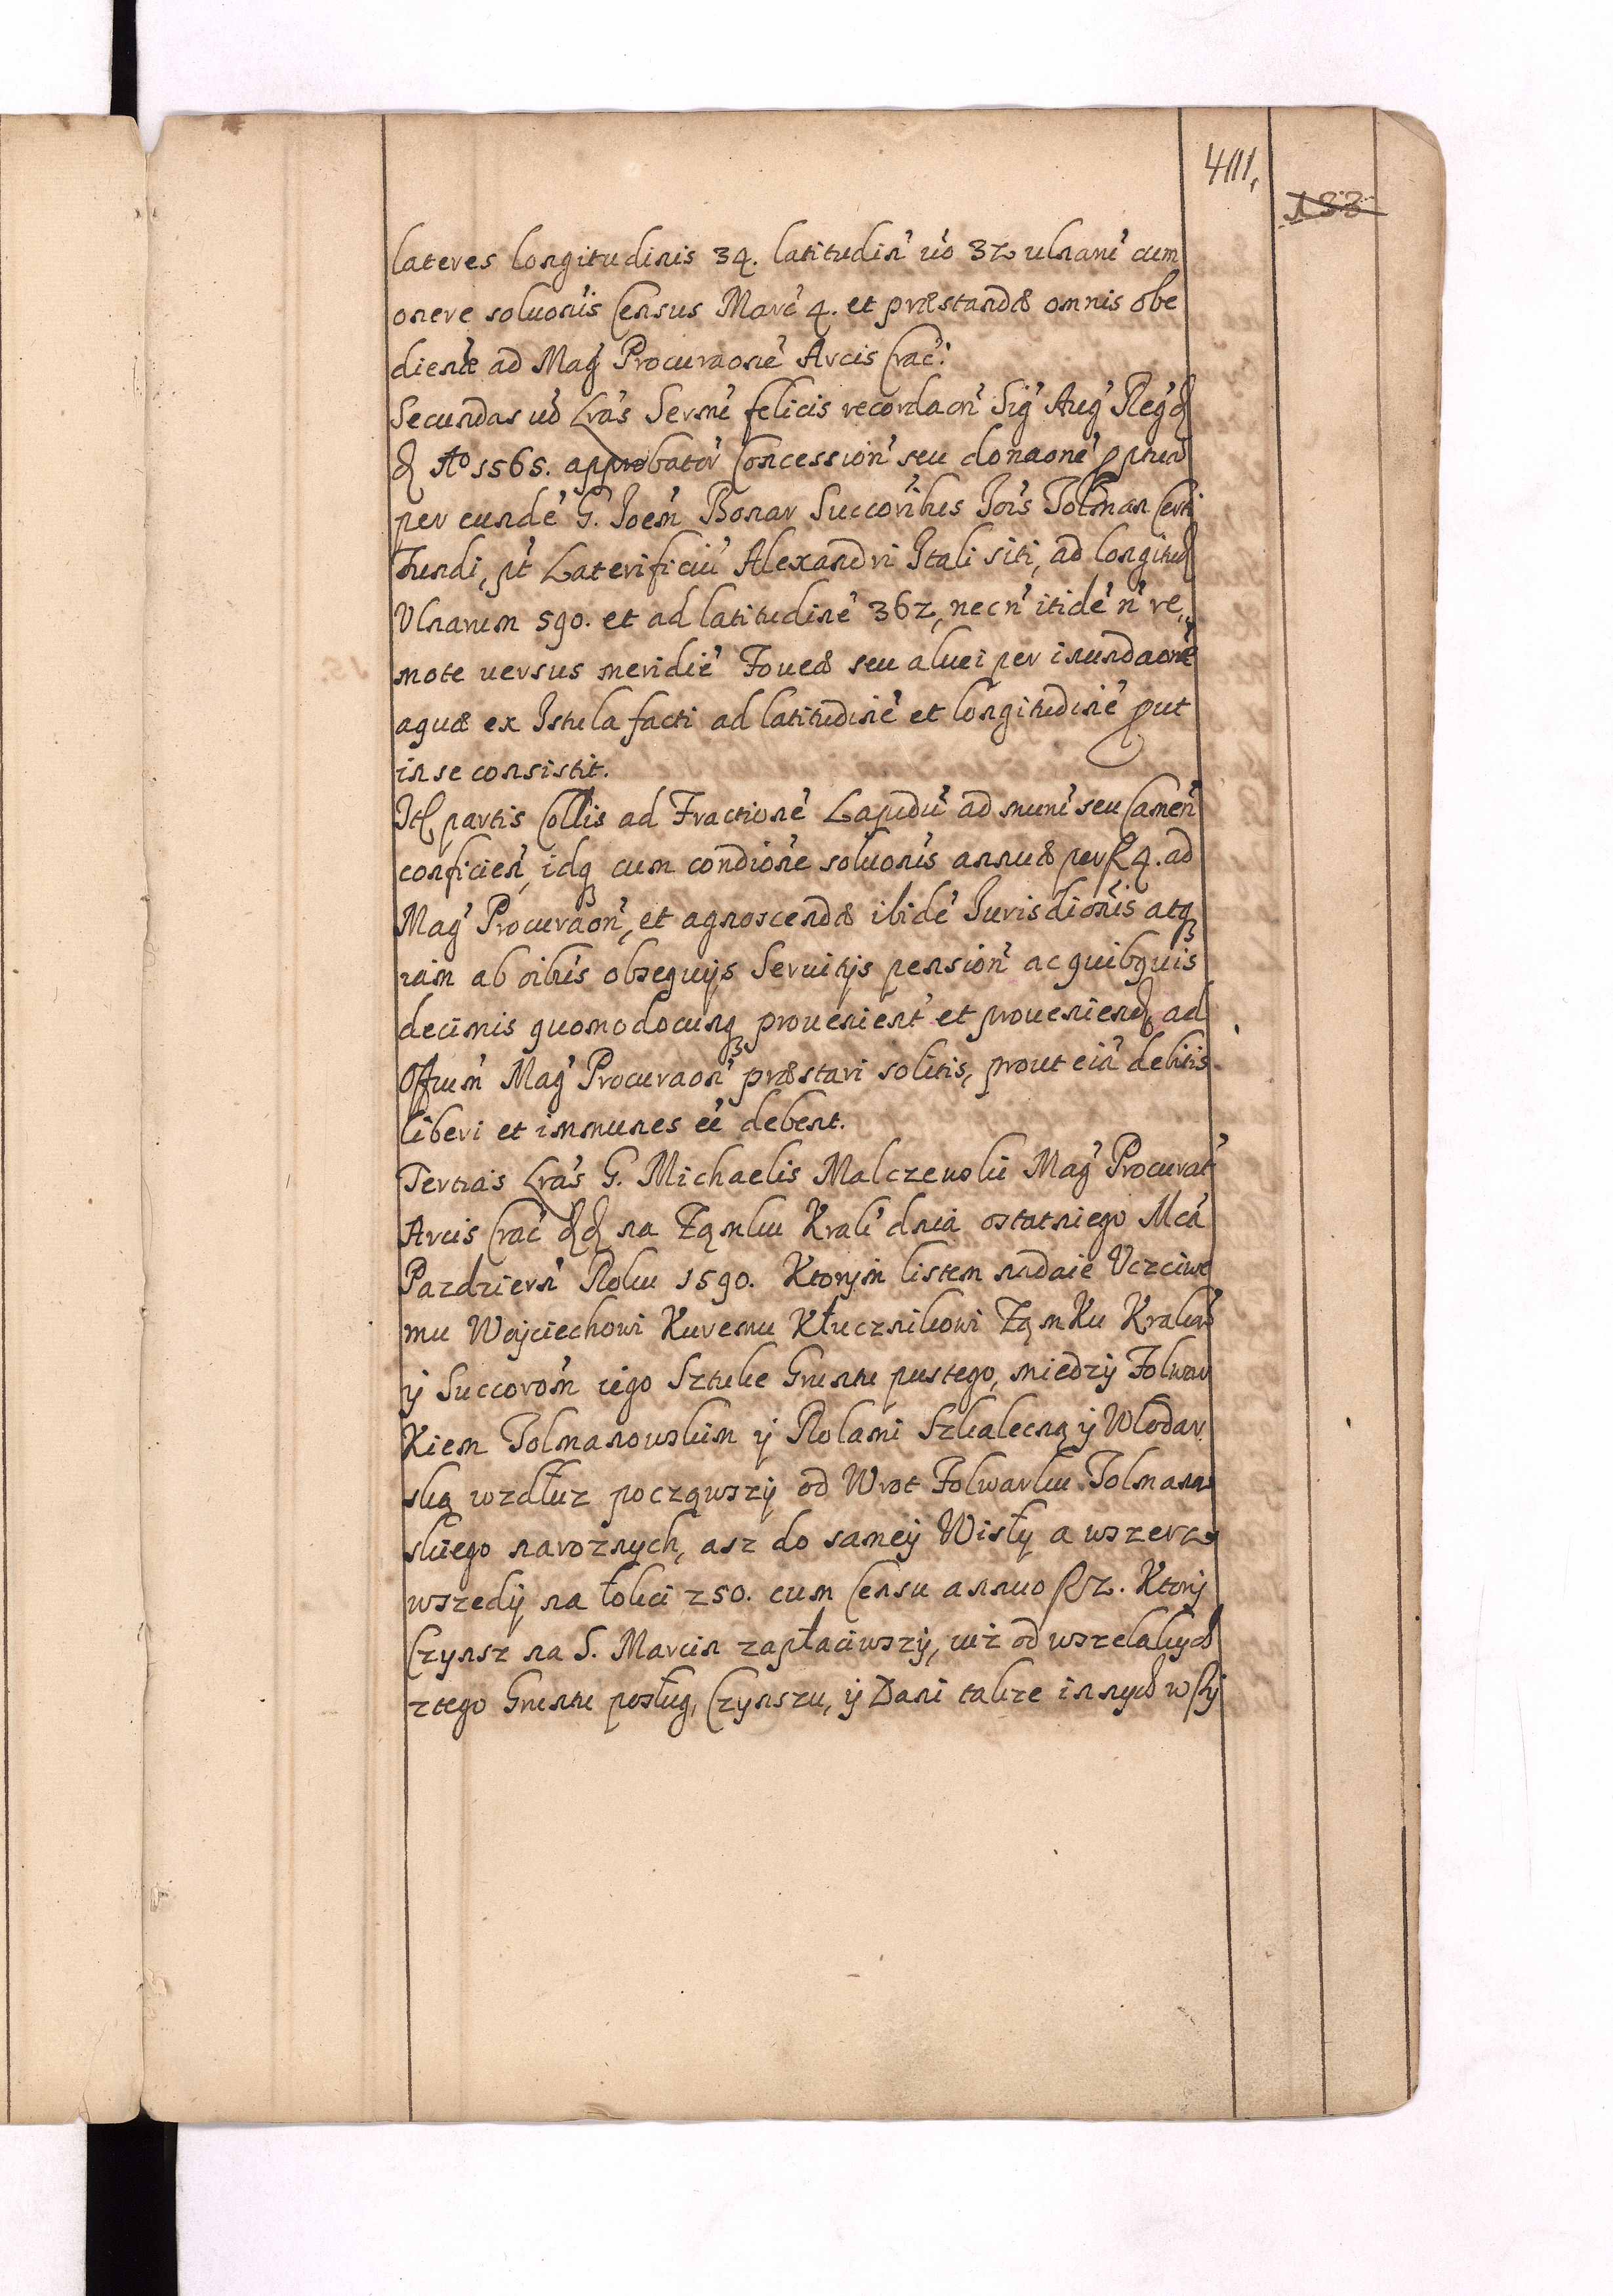 411,
133
lateres longitudinis 34. latitudin' u'o 32 ulnaru' cum
onere soluon'is Census Marc' 4. et præstandæ omnis obe
dientie ad Mag' Procuraone' Arcis Crac':
Secundas u'o Lra's Serm'i felicis recordaon' Sig' Aug' Reg'
Ao 1565. approbator' Concession' seu donaone'
per eunde' G. Joe'm Bonar Succorib'us Jo'is Tolman Certi
Fundi, p't Laterificiu' Alexandri Itali siti, ad longitud
Ulnarum 590. et ad latitudine' 362, necn' itide' n' re„
mote uersus meridie' Foueæ seu aluei per inundaone'
aquæ ex Istula facti ad latitudine' et longitudine' put
in se consistit.
It partis Collis ad Fractione' Lapidu' ad muru' seu Camen'
conficien', idq cum condio'ne soluon'is annuæ per 4. ad
Mag' Procuraon', et agnoscendæ ibide' Jurisdion'is atq
iam ab oib'us obsequijs Seruitijs pension' ac quibquis
decimis quomodocunq prouenient' et proueniend ad
Offium' Mag' Procuraon' præstari solitis, prout eia' debitis
liberi et immunes ee' debent.
Tertia's Lra's G. Michaelis Malczewski Mag' Procurat'
Arcis Crac' na Ząmku Krak' dnia ostatniego Mca'
Pazdziern' Roku 1590. Ktorym listem nadaie Uczciwe
mu Wojciechowi Kuremu Kłucznikowi Ząmku Krakow'
ÿ Succoro'm iego Sztuke Gruntu pustego, miedzÿ Folwar
Kiem Tolmanowskim ÿ Rolami Szkalecną ÿ Wlodar
ską wzdłuz począwszÿ od Wrot Folwarku Tolmanow
skiego narożnych, asz do sameÿ Wisłÿ a wszerz
wszedÿ na łokci 250. cum Censu annuo 2. Ktorÿ
Czynsz na S. Marcin zapłaciwszÿ, iuż od wszelakych
z tego Gruntu posług, Czynszu, ÿ Dani także innych wsÿ